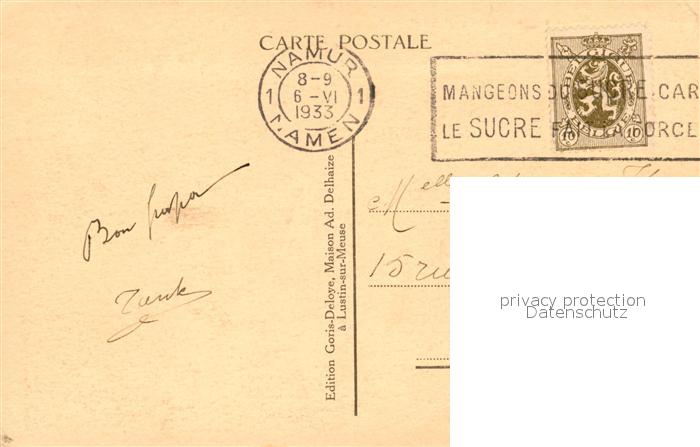 CARTE POSTALE
NAMUR
8-9
1 6-VI 1
1933
NAMEN
MANGEONS DU SUCRE CAR
LE SUCRE FAIT LA FORCE
BELGIQUE
BELGIE
10 10
Edition Goris-Deloye, Maison Ad. Delhaize
à Lustin-sur-Meuse
Melle
15 rue
Bon
privacy protection
Datenschutz